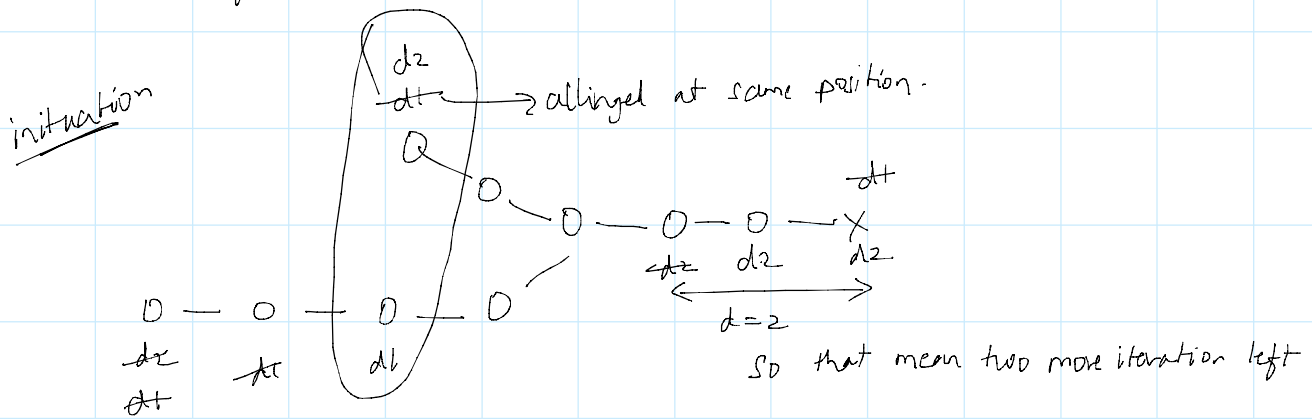 inituation
d2
d1 → allinged at same position.
d1
d2 d2 d2
d=2
d2 d1 d1
d1
So that mean two more iteration left